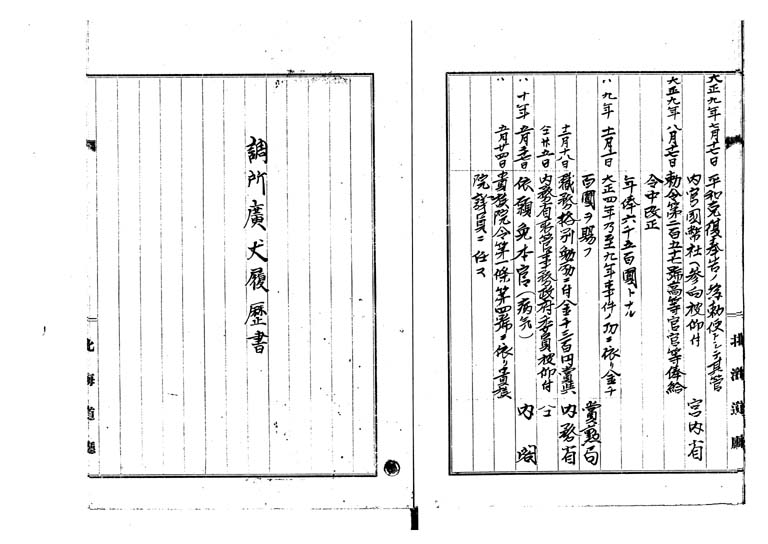 大正九年七月十七日 平和克復奉告ノ為勅使トシテ其管
内官国幣社ヘ参向被仰付 宮内省
大正九年八月十七日 勅令第二百五十七號高等官官等俸給
令中改正
年俸六千五百圓トナル
〃九年十一月一日 大正四年乃至九年事件ノ功ニ依リ金千
百圓ヲ賜フ 賞勲局
十二月十八日 職務格別勉励ニ付金千三百円賞與 内務省
仝廿五日 内務省所管事務政府委員被仰付 仝
〃十年五月 依願免本官(病気) 内閣
〃 五月廿四日 貴族院令第一條第四號ニ依リ貴族
院議員ニ任ス
北海道廳
調所廣丈履歴書
北海道廳